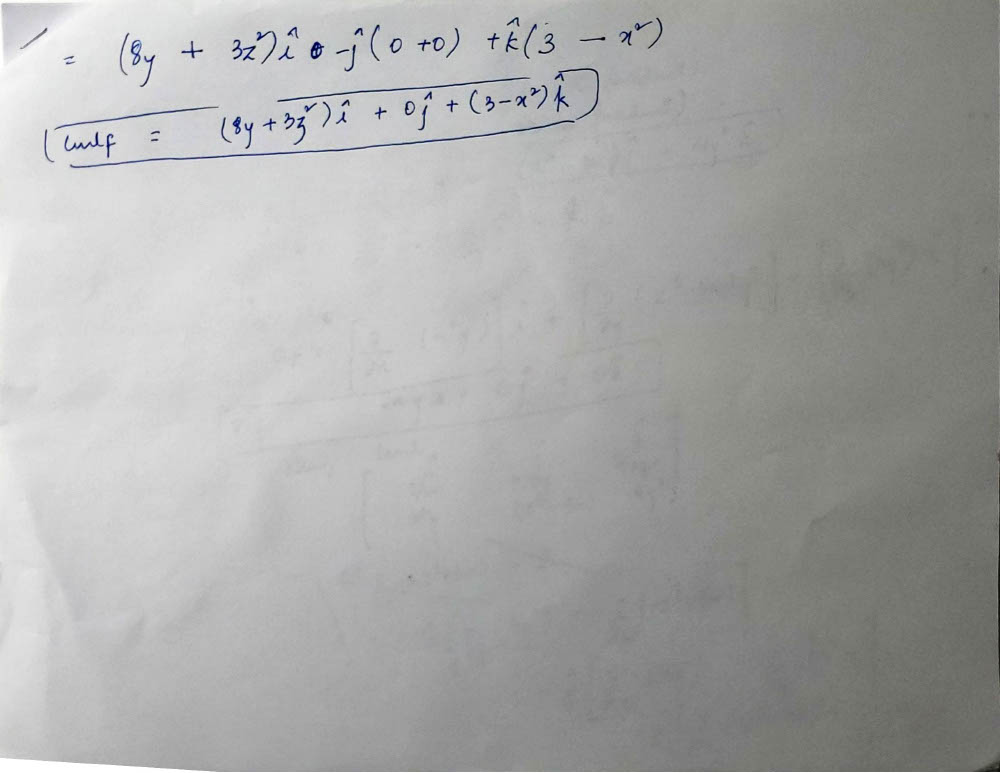 = (8y + 3z²)î - ĵ(0+0) + k̂(3 - x²)
Curl f = (8y + 3z²)î + 0ĵ + (3-x²)k̂